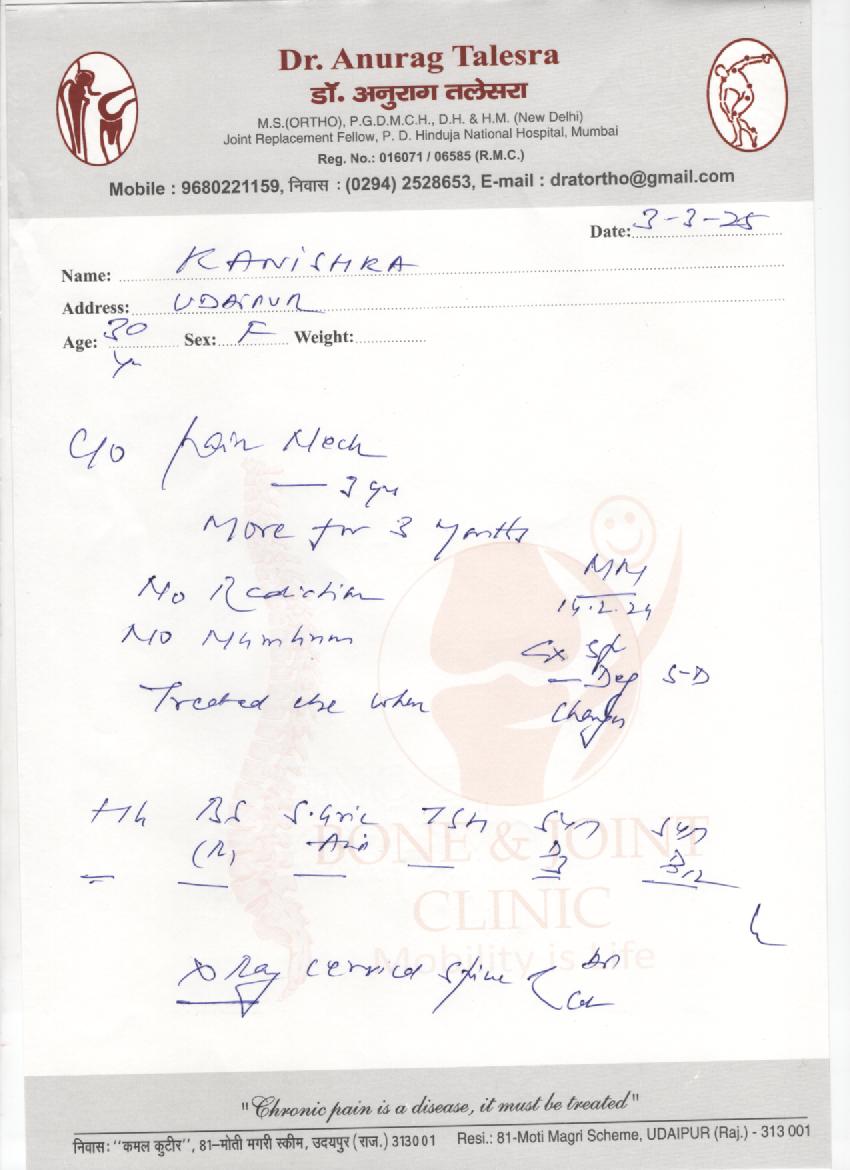 Dr. Anurag Talesra
डॉ. अनुराग तलेसरा
M.S.(ORTHO), P.G.D.M.C.H., D.H. & H.M. (New Delhi)
Joint Replacement Fellow, P. D. Hinduja National Hospital, Mumbai
Reg. No.: 016071 / 06585 (R.M.C.)
Mobile : 9680221159, निवास : (0294) 2528653, E-mail : dratortho@gmail.com
Date: 3-3-25
Name: KANISHKA
Address: UDAIPUR
Age: 30 Sex: F Weight:
yr
C/o pain Neck
— 3 yr
More for 3 months
No Radiation
No Numbness
Treated else when
14.2.24
Cx Sp
— Deg
Changes
Hb BS S. Uric TSH
(R) Acid D3 B12
BONE & JOINT
CLINIC
Mobility is Life
X Ray cervical spine
"Chronic pain is a disease, it must be treated"
निवास: "कमल कुटीर", 81–मोती मगरी स्कीम, उदयपुर (राज.) 313001 Resi.: 81-Moti Magri Scheme, UDAIPUR (Raj.) - 313 001